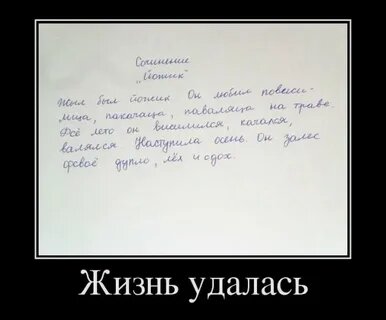 Сочинение
„Йожик"
Жыл был йожик. Он любил повеси-
лица, пакачаца, паваляца на траве.
Всё лето он висилился, качался,
валялся. Наступила осень. Он залес
фсваё дупло, лёх и сдох.
Жизнь удалась